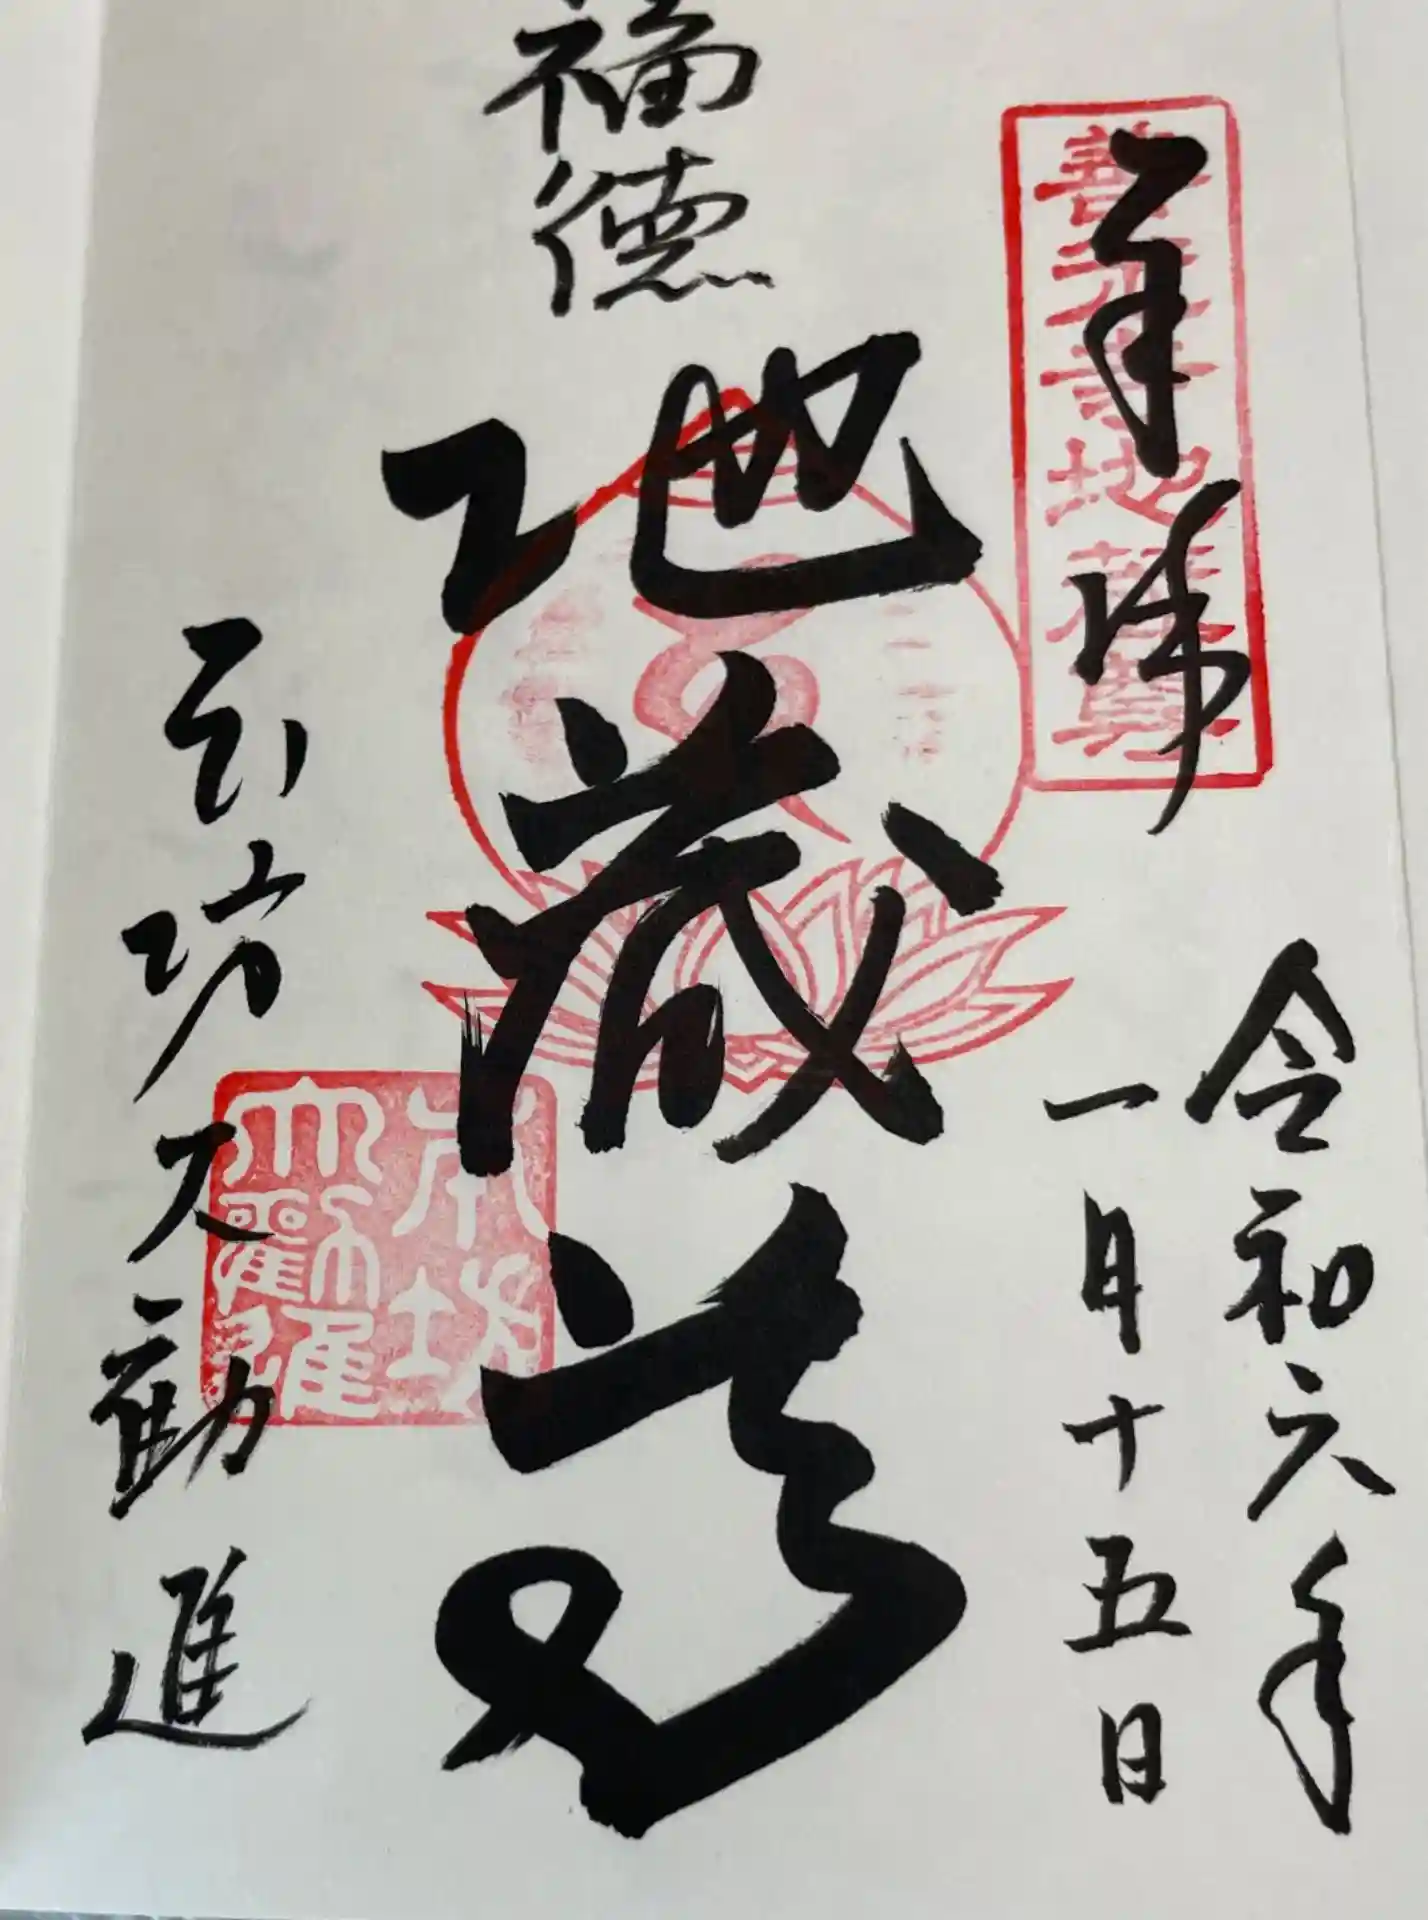 奉拝
善光寺地蔵尊
令和六年
一月十五日
福徳
地蔵尊
本坊大勧進
本坊
大勸進